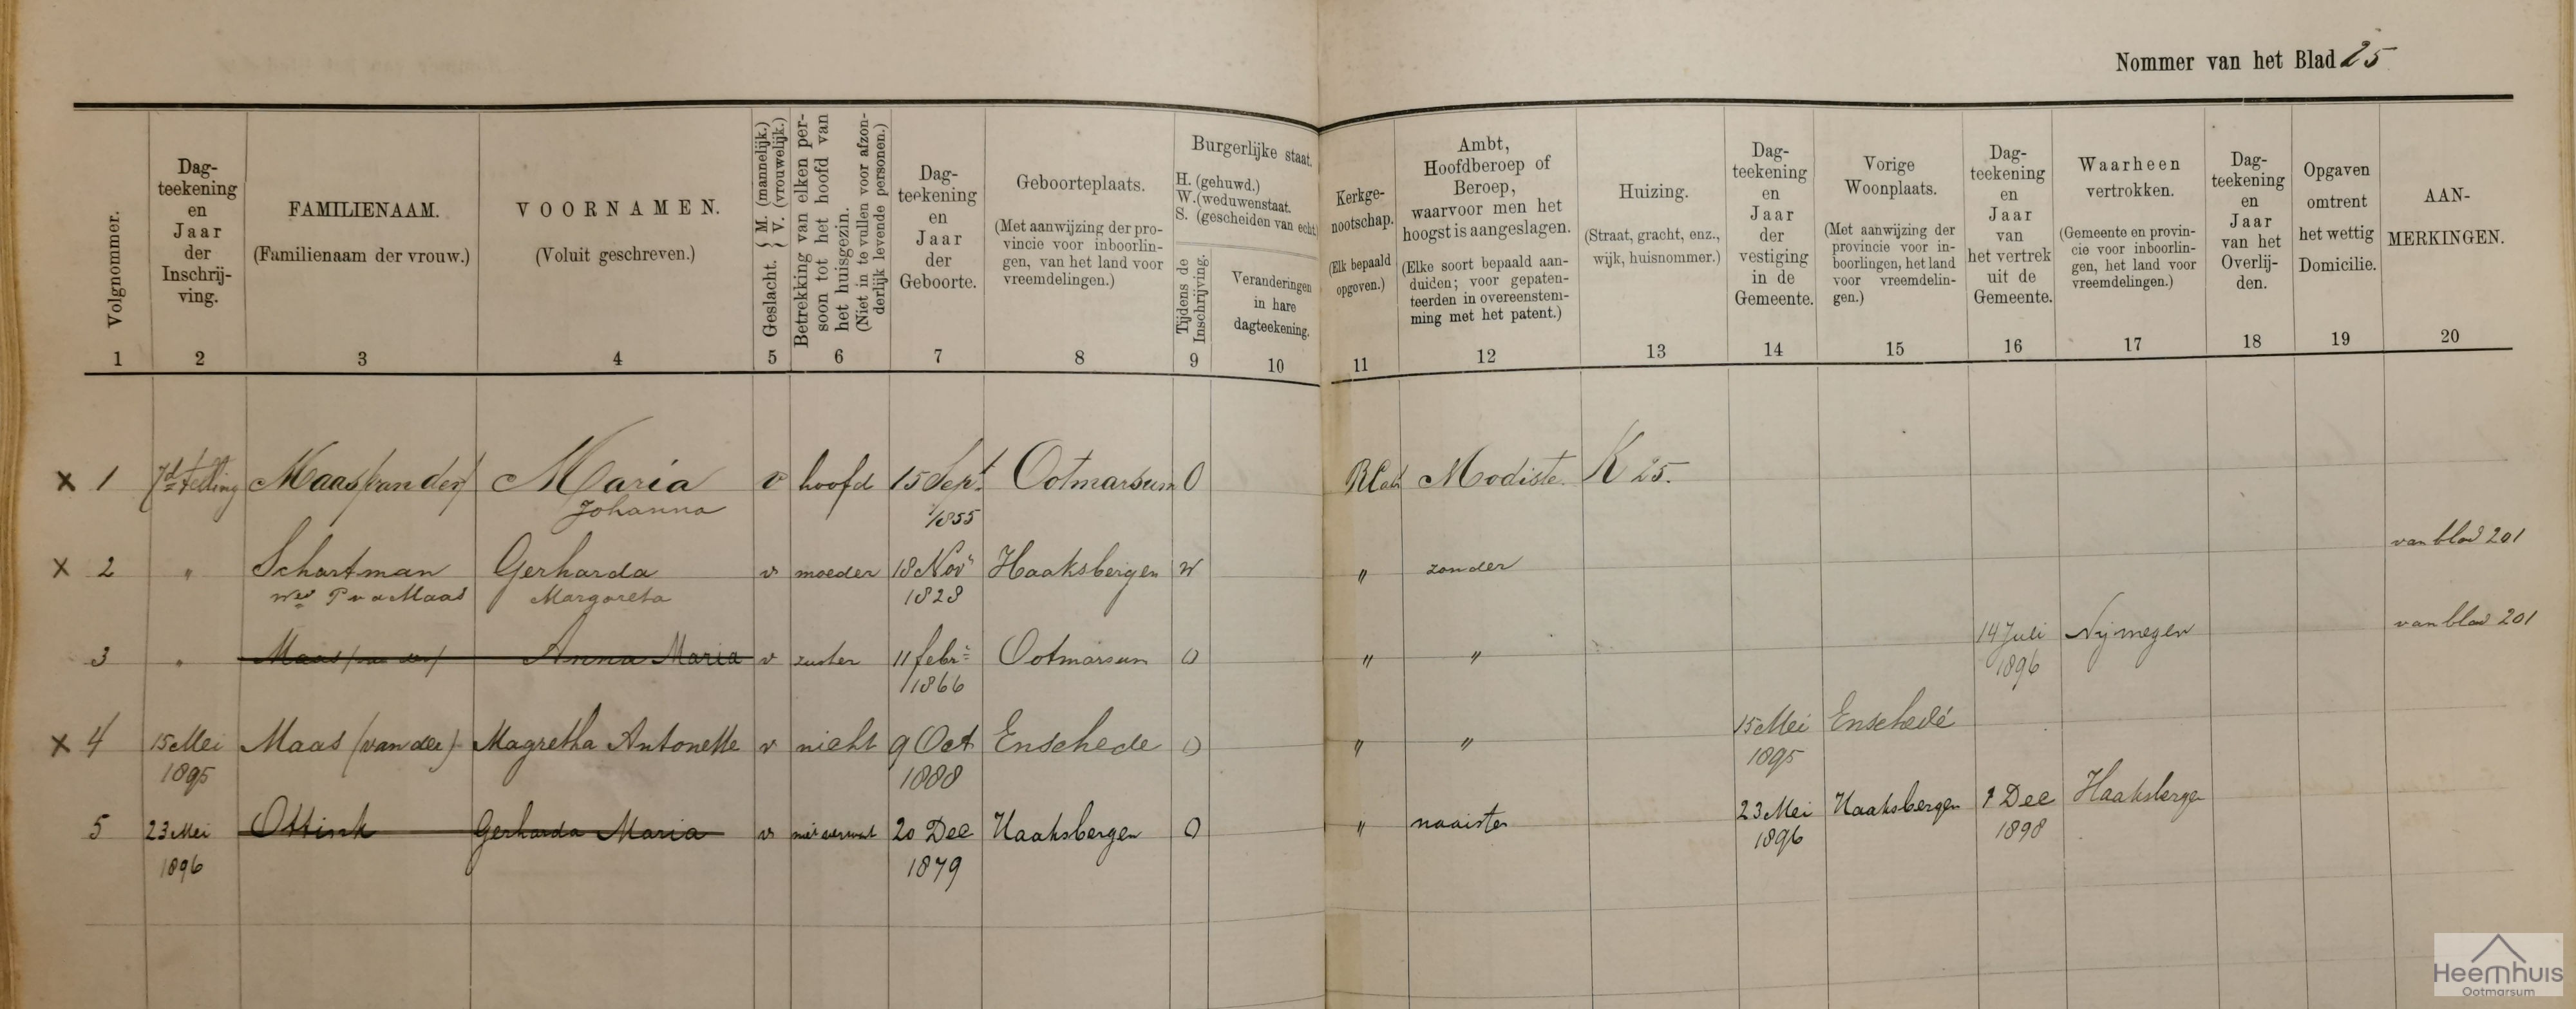 Nommer van het Blad 25
Volgnommer.
1
Dag-
teekening
en
Jaar
der
Inschrij-
ving.
2
FAMILIENAAM.
(Familienaam der vrouw.)
3
VOORNAMEN.
(Voluit geschreven.)
4
Geslacht. { M. (mannelijk.)
V. (vrouwelijk.)
5
Betrekking van elken per-
soon tot het hoofd van
het huisgezin.
(Niet in te vullen voor afzon-
derlijk levende personen.)
6
Dag-
teekening
en
Jaar
der
Geboorte.
7
Geboorteplaats.
(Met aanwijzing der pro-
vincie voor inboorlin-
gen, van het land voor
vreemdelingen.)
8
Burgerlijke staat.
H. (gehuwd.)
W. (weduwenstaat.
S. (gescheiden van echt)
Tijdens de
Inschrijving.
9
Veranderingen
in hare
dagteekening.
10
Kerkge-
nootschap.
(Elk bepaald
opgeven.)
11
Ambt,
Hoofdberoep of
Beroep,
waarvoor men het
hoogst is aangeslagen.
(Elke soort bepaald aan-
duiden; voor gepaten-
teerden in overeenstem-
ming met het patent.)
12
Huizing.
(Straat, gracht, enz.,
wijk, huisnommer.)
13
Dag-
teekening
en
Jaar
der
vestiging
in de
Gemeente.
14
Vorige
Woonplaats.
(Met aanwijzing der
provincie voor in-
boorlingen, het land
voor vreemdelin-
gen.)
15
Dag-
teekening
en
Jaar
van
het vertrek
uit de
Gemeente.
16
Waarheen
vertrokken.
(Gemeente en provin-
cie voor inboorlin-
gen, het land voor
vreemdelingen.)
17
Dag-
teekening
en
Jaar
van het
Overlij-
den.
18
Opgaven
omtrent
het wettig
Domicilie.
19
AAN-
MERKINGEN.
20
x 1 7d telling Maas (van der) Maria v hoofd 15 Sept Ootmarsum O R Cath Modiste. K 25.
Johanna 1855
x 2 " Schartman Gerharda v moeder 18 Nov Haaksbergen W " zonder van blad 201
Wed P v d Maas Margareta 1828
3 " Maas (van der) Anna Maria v zuster 11 febr Ootmarsum O " " 14 Juli Nijmegen van blad 201
1866 1896
x 4 15 Mei Maas (van der) Magretha Antonette v nicht 9 Oct Enschede O " " 15 Mei Enschedé
1895 1888 1895
5 23 Mei Ottink Gerharda Maria v 20 Dec Haaksbergen O " naaister 23 Mei Haaksbergen 1 Dec Haaksbergen
1896 1879 1896 1898
Heemhuis
Ootmarsum